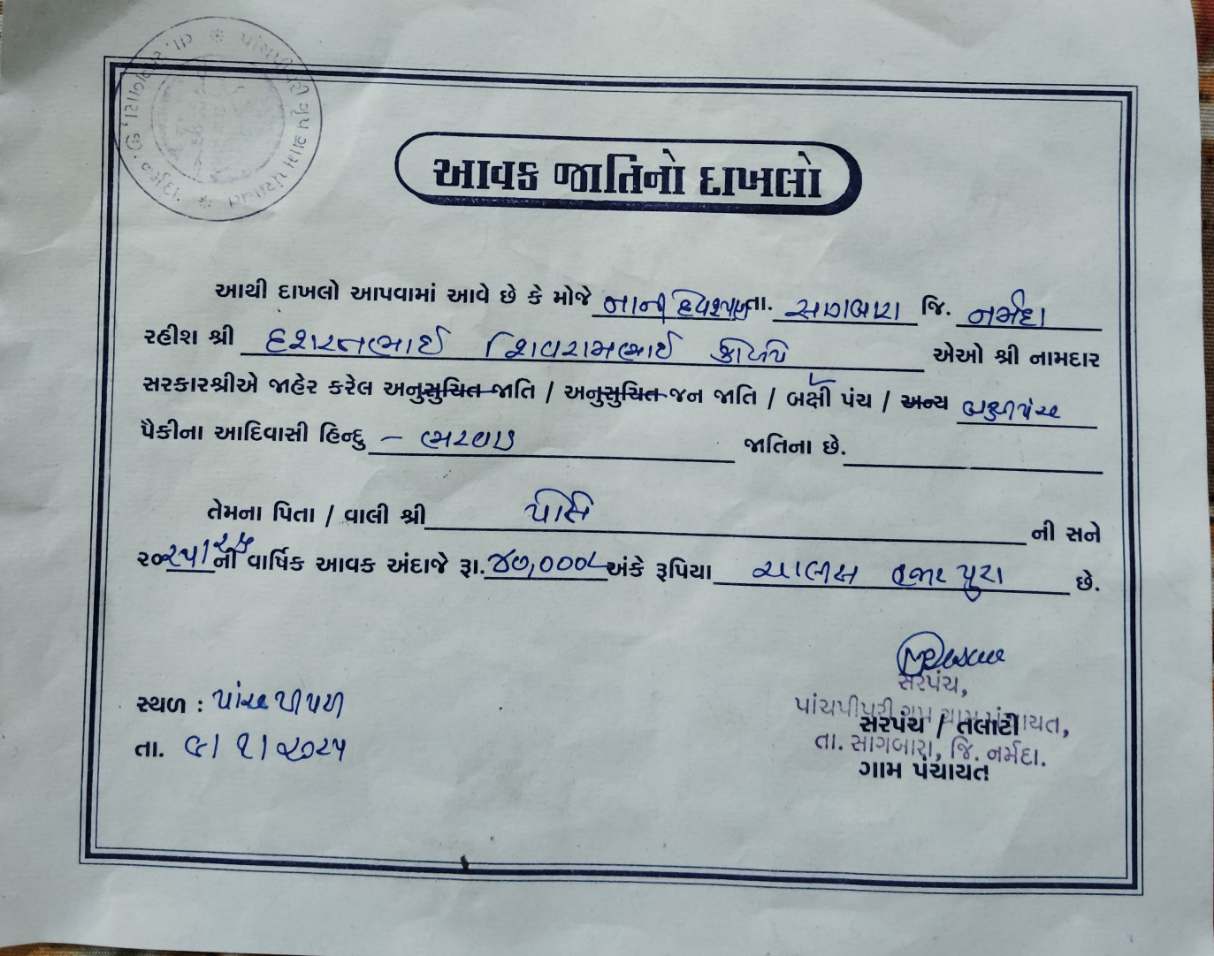 આવક જાતિનો દાખલો
આથી દાખલો આપવામાં આવે છે કે મોજે નાની તા. સાગબારા જિ. નર્મદા
રહીશ શ્રી દશરતભાઈ શિવરામભાઈ એઓ શ્રી નામદાર
સરકારશ્રીએ જાહેર કરેલ અનુસુચિત જાતિ / અનુસુચિત જન જાતિ / બક્ષી પંચ / અન્ય બક્ષીપંચ
પૈકીના આદિવાસી હિન્દુ - ભરવાડ જાતિના છે.
તેમના પિતા / વાલી શ્રી પોતે ની સને
૨૦૨૫/૨૬ ની વાર્ષિક આવક અંદાજે રૂા. ૪૦,૦૦૦/ અંકે રૂપિયા ચાલીસ હજાર પુરા છે.
સરપંચ,
પાંચપીપરી ગ્રુપ ગ્રામ પંચાયત,
સ્થળ : પાંચપીપરી
સરપંચ / તલાટી
તા. સાગબારા, જિ. નર્મદા.
તા. ૯/૧/૨૦૨૫
ગામ પંચાયત